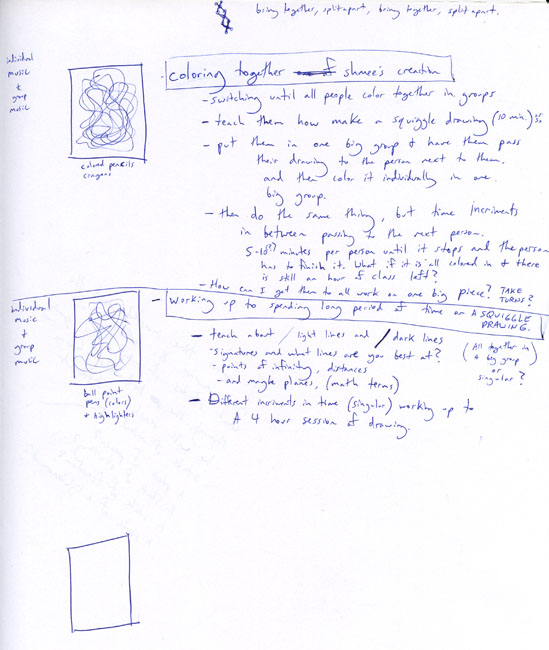 bring together, split apart, bring together, split apart.
individual
music
+
group
music
colored pencils
crayons
coloring together of shmee's creation
- switching until all people color together in groups
- teach them how make a squiggle drawing (10 min.)
- put them in one big group & have them pass
their drawing to the person next to them.
and then color it individually in one
big group.
- then do the same thing, but time incriments
in between passing to the next person.
5-10?? minutes per person until it stops and the person
has to finish it. What if it is all colored in & there
is still an hour of class left?
- How can I get them to all work on one big piece? TAKE
TURNS?
individual
music
+
group
music
ball point
pens (colors)
+ highlighters
- Working up to spending long period of time on A SQUIGGLE
DRAWING.
- teach about / light lines and / dark lines
- signatures and what lines are you best at?
- points of infinity, distances
- and maybe planes, (math terms)
(All together in
a big group
or
singular?)
- Different incriments in time (singular) working up to
A 4 hour session of drawing.